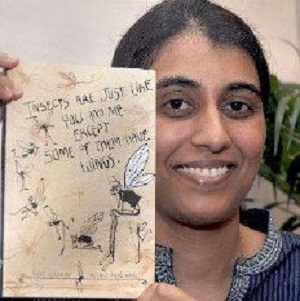 INSECTS ARE JUST LIKE
YOU AND ME
EXCEPT
SOME OF THEM HAVE
WINGS.